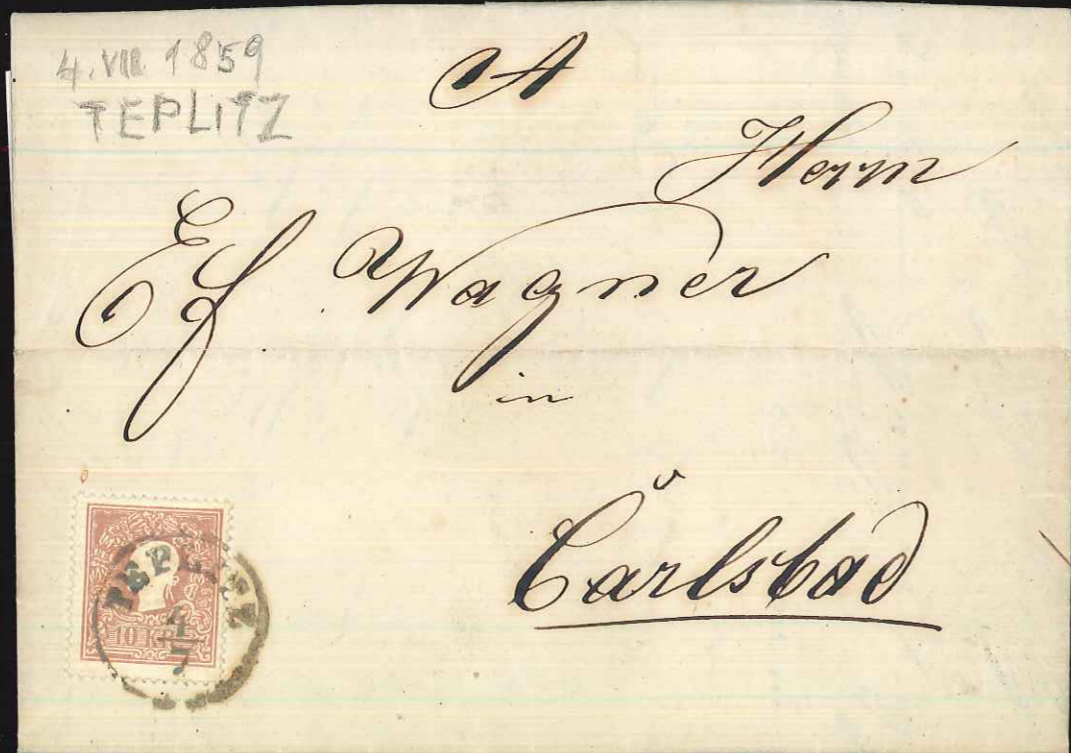 4. VII. 1859
TEPLITZ
A
Herrn
Ef Wagner
in
Carlsbad
TEPLITZ
4
7
10 KR